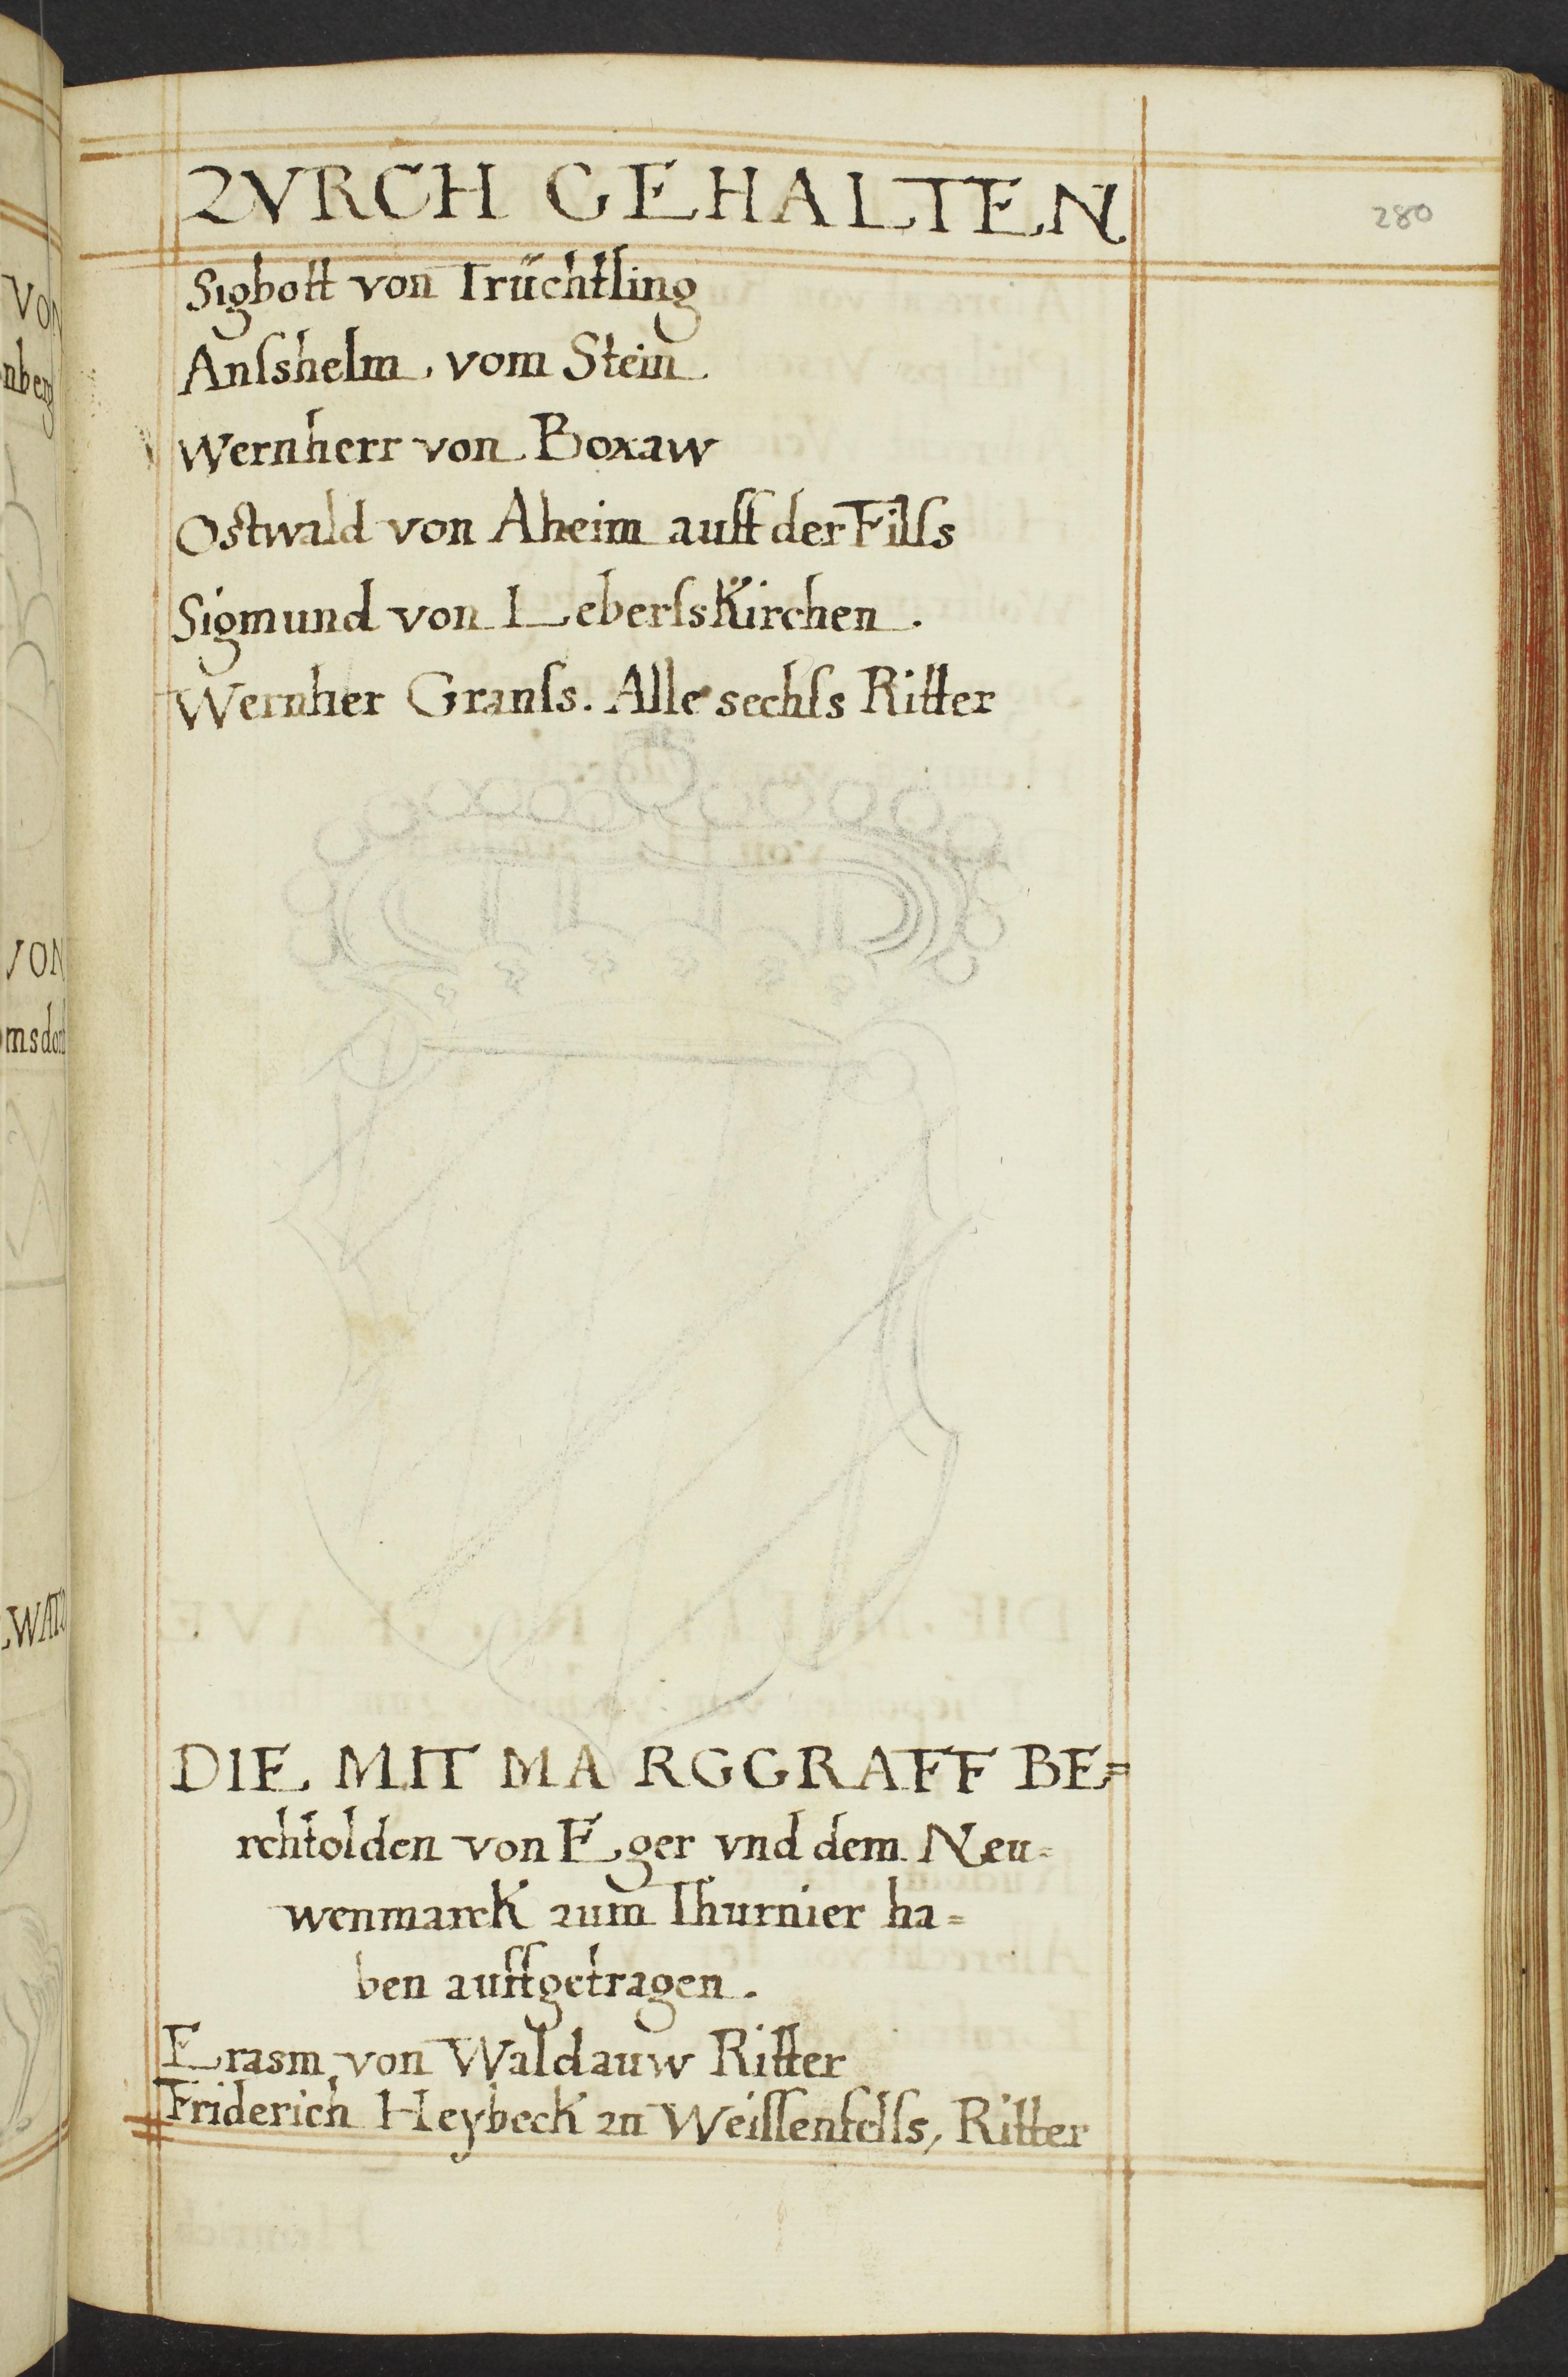 ZVRCH GEHALTEN
280
Sigbott von Trüchtling
Anſshelm vom Stein
Wernherr von Boxaw
Oſtwald von Aheim auff der Filſs
Sigmund von Leberſskirchen.
Wernher Granſs. Alle sechſs Ritter
DIE MIT MARGGRAFF BE=
rchtolden von Eger vnd dem Neu=
wenmarck zum Thurnier ha=
ben auffgetragen.
Erasm von Waldauw Ritter
Friderich Heybeck zu Weiſſenfelſs, Ritter
VON
nberg
VON
msdorf